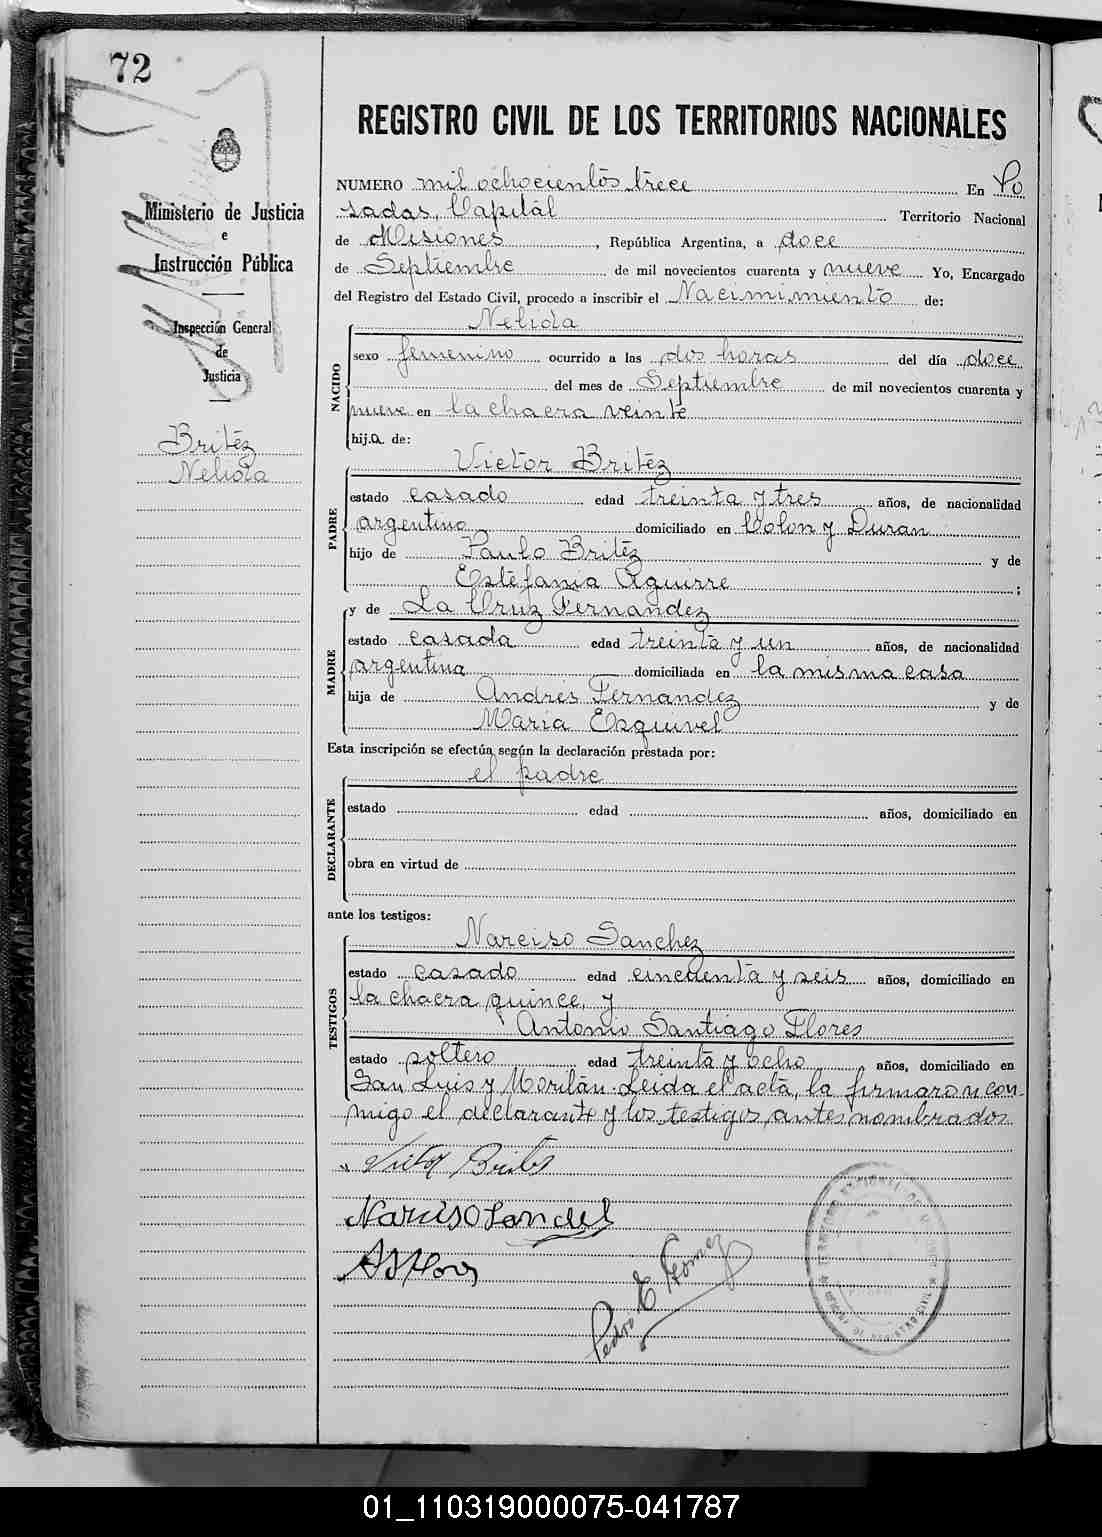 72
Ministerio de Justicia
e
Instrucción Pública
Inspección General
de
Justicia
Britéz
Nelida
REGISTRO CIVIL DE LOS TERRITORIOS NACIONALES
NUMERO mil ochocientos trece En Po
sadas, Capital Territorio Nacional
de Misiones, República Argentina, a doce
de Septiembre de mil novecientos cuarenta y nueve Yo, Encargado
del Registro del Estado Civil, procedo a inscribir el Nacimimiento de:
NACIDO
Nelida
sexo femenino ocurrido a las dos horas del día doce
del mes de Septiembre de mil novecientos cuarenta y
nueve en la chacra veinte
hija de:
PADRE
Victor Britéz
estado casado edad treinta y tres años, de nacionalidad
argentino domiciliado en Colon y Duran
hijo de Paulo Britéz y de
Estefania Aguirre ;
MADRE
y de La Cruz Fernandez
estado casada edad treinta y un años, de nacionalidad
argentina domiciliada en la misma casa
hija de Andrés Fernandez y de
Maria Esquivel
Esta inscripción se efectúa según la declaración prestada por:
DECLARANTE
el padre
estado edad años, domiciliado en
obra en virtud de
ante los testigos:
TESTIGOS
Narciso Sanchez
estado casado edad cincuenta y seis años, domiciliado en
la chacra quince, y
Antonio Santiago Flores
estado soltero edad treinta y ocho años, domiciliado en
San Luis y Morilán. Leida el acta, la firmaron con
migo el declarante y los testigos antes nombrados
Victor Britez
Narciso Sanchez
A S Flores
Pedro E Gomez
01_110319000075-041787